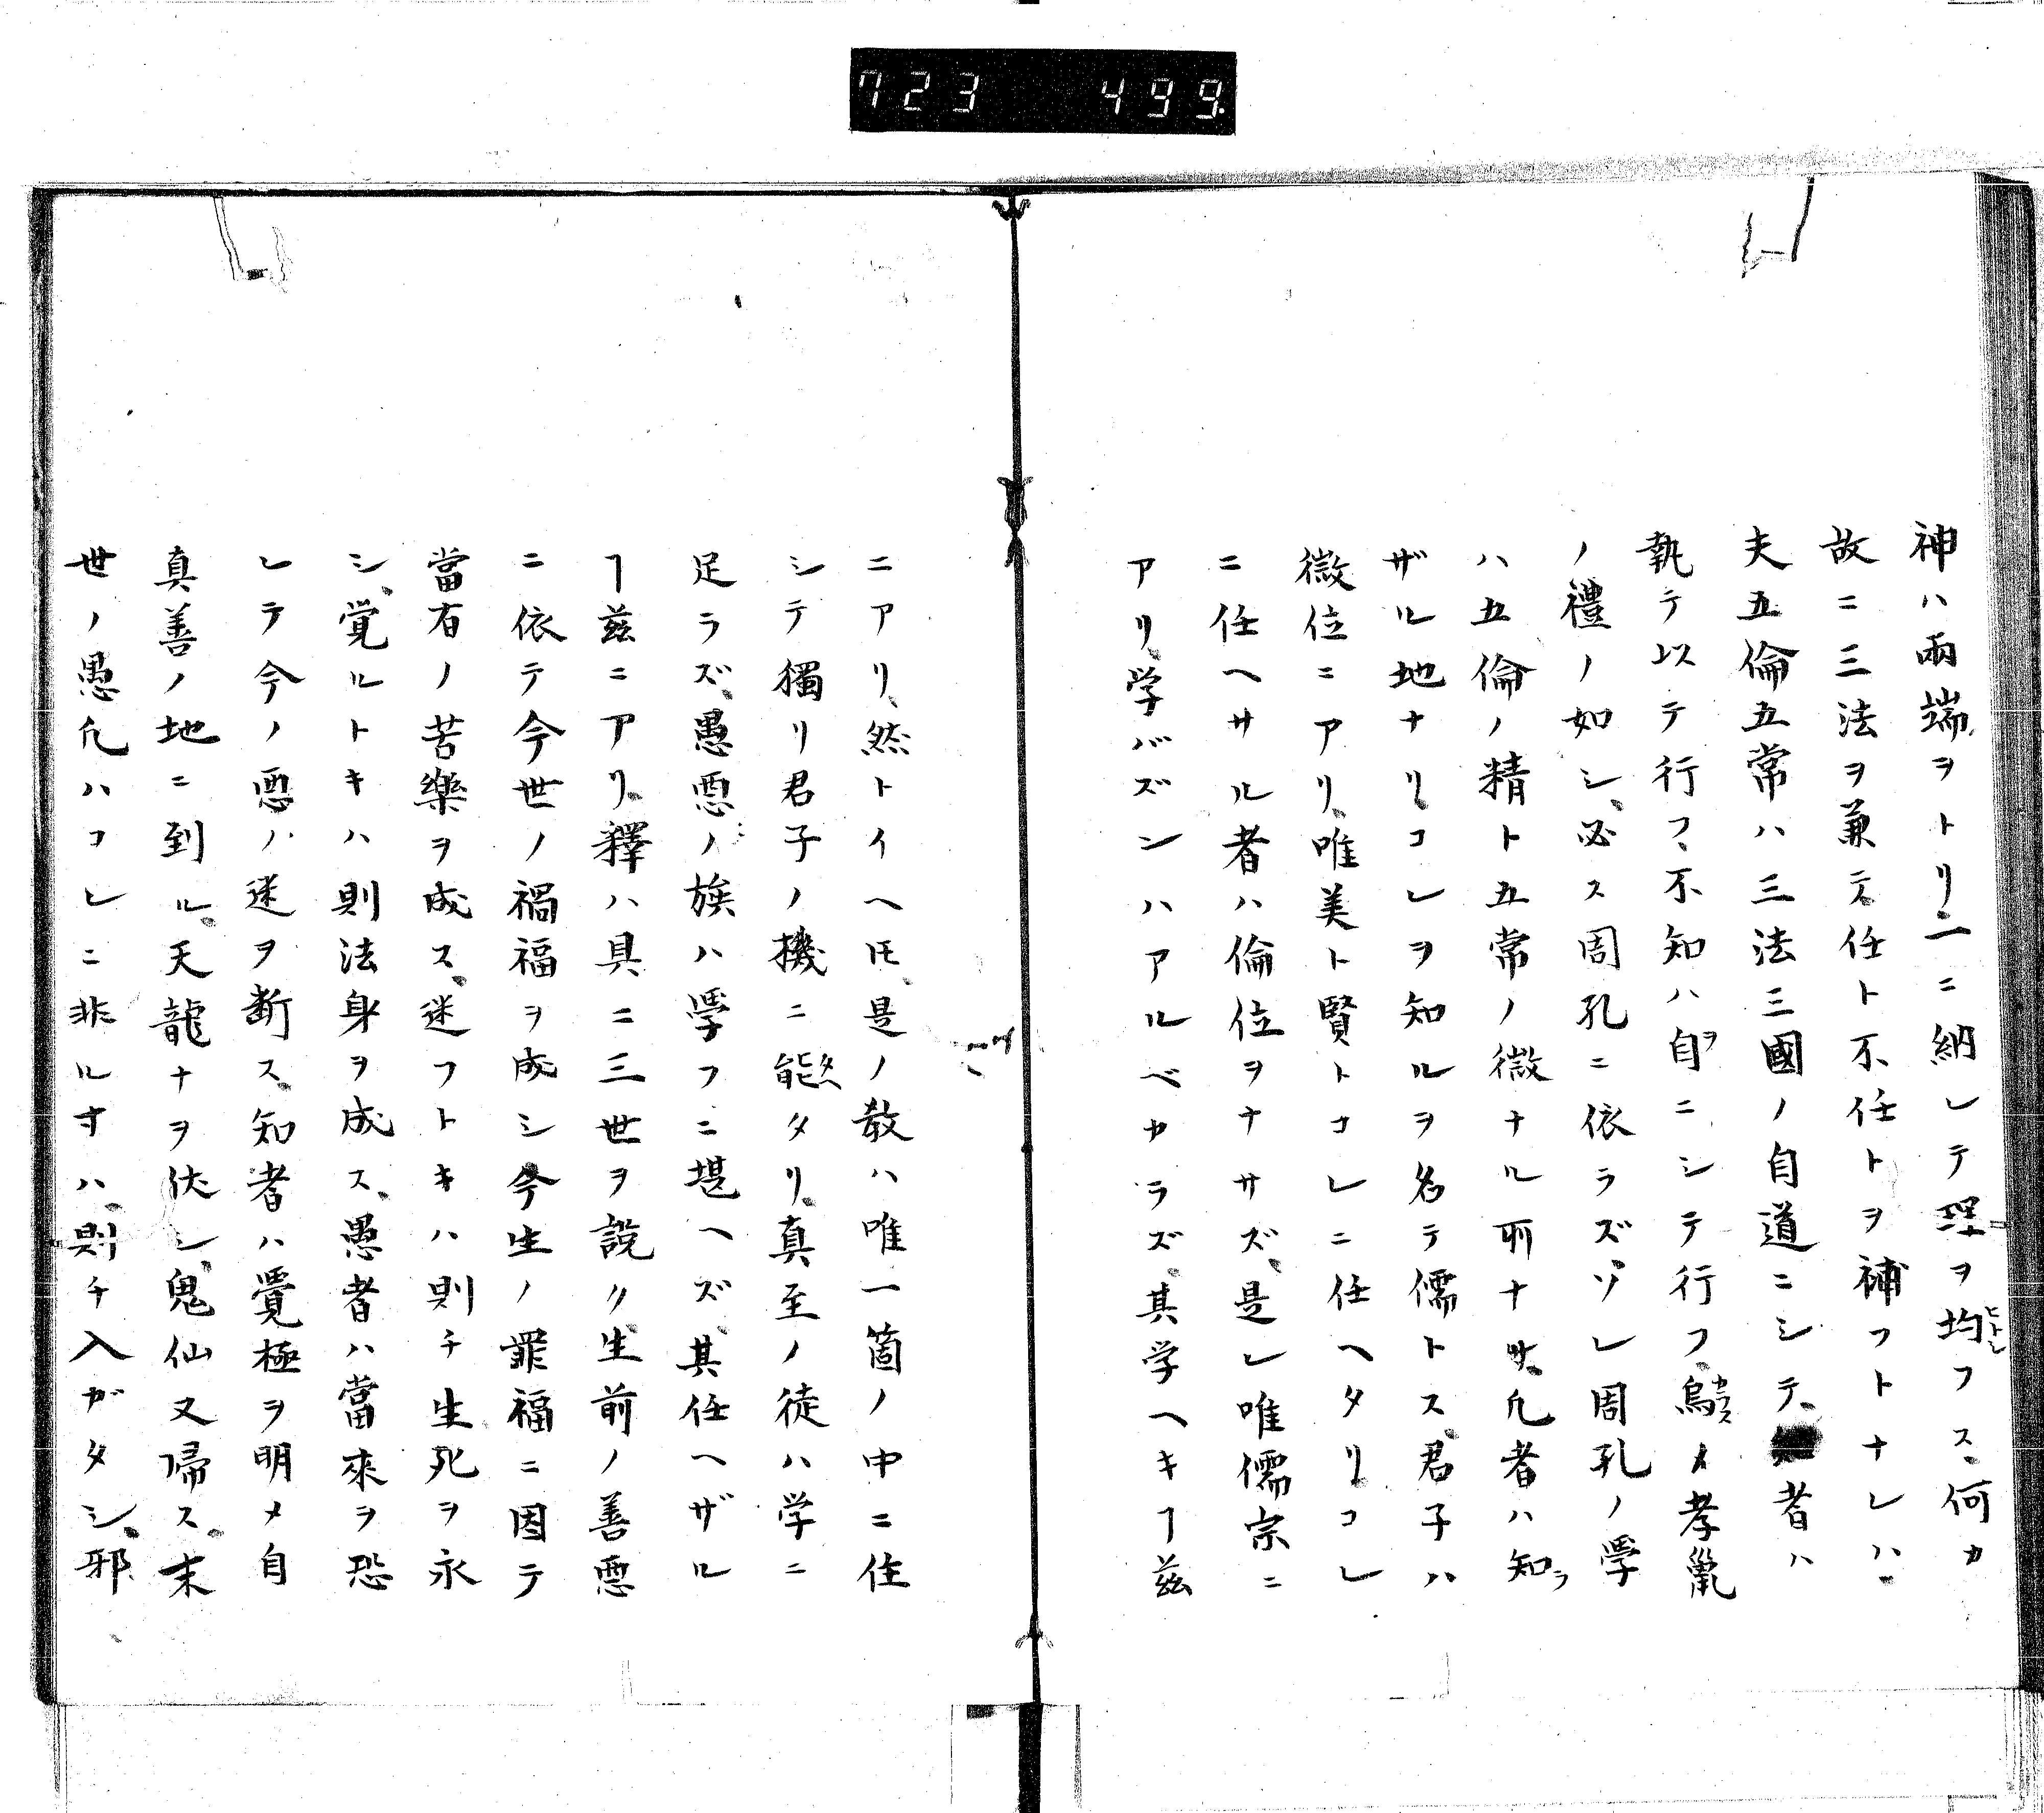 723 499
神ハ兩端ヲトリ、一ニ納レテ理ヲ均フス、何カ
ヒトシ
故ニ三法ヲ兼テ、任ト不任トヲ補フトナレハ、
夫五倫五常ハ三法三國ノ自道ニシテ、者ハ
執テ以テ行フ、不知ハ自ニシテ行フ、烏メ孝巤
ヲ
カラス
ノ禮ノ如シ、必ス周孔ニ依ラズ、ソレ周孔ノ學
ハ五倫ノ精ト五常ノ微ナル所ナリ、凢者ハ知ラ
ザル地ナリ、コレヲ知ルヲ名テ儒トス、君子ハ
微位ニアリ、唯美ト賢トコレニ任ヘタリ、コレ
ニ任ヘサル者ハ倫位ヲナサズ、是レ唯儒宗ニ
アリ、学バズンハアルベカラズ、其学ヘキヿ茲
ニアリ、然トイヘ𪜈、是ノ教ハ唯一箇ノ中ニ住
シテ獨リ君子ノ機ニ能タリ、真至ノ徒ハ学ニ
足ラズ、愚悪ノ族ハ學フニ堪ヘズ、其任ヘザル
ヿ茲ニアリ、釋ハ具ニ三世ヲ説ク、生前ノ善悪
ニ依テ今世ノ禍福ヲ成シ、今生ノ罪福ニ因テ
當有ノ苦樂ヲ成ス、迷フトキハ則チ生死ヲ永
シ、覚ルトキハ則法身ヲ成ス、愚者ハ當來ヲ恐
レテ今ノ悪ノ迷ヲ断ス、知者ハ覺極ヲ明メ自
真善ノ地ニ到ル、天龍ナヲ伏シ、鬼仙又帰ス、末
世ノ愚凢ハコレニ非ル寸ハ、則チ入ガタシ、邪